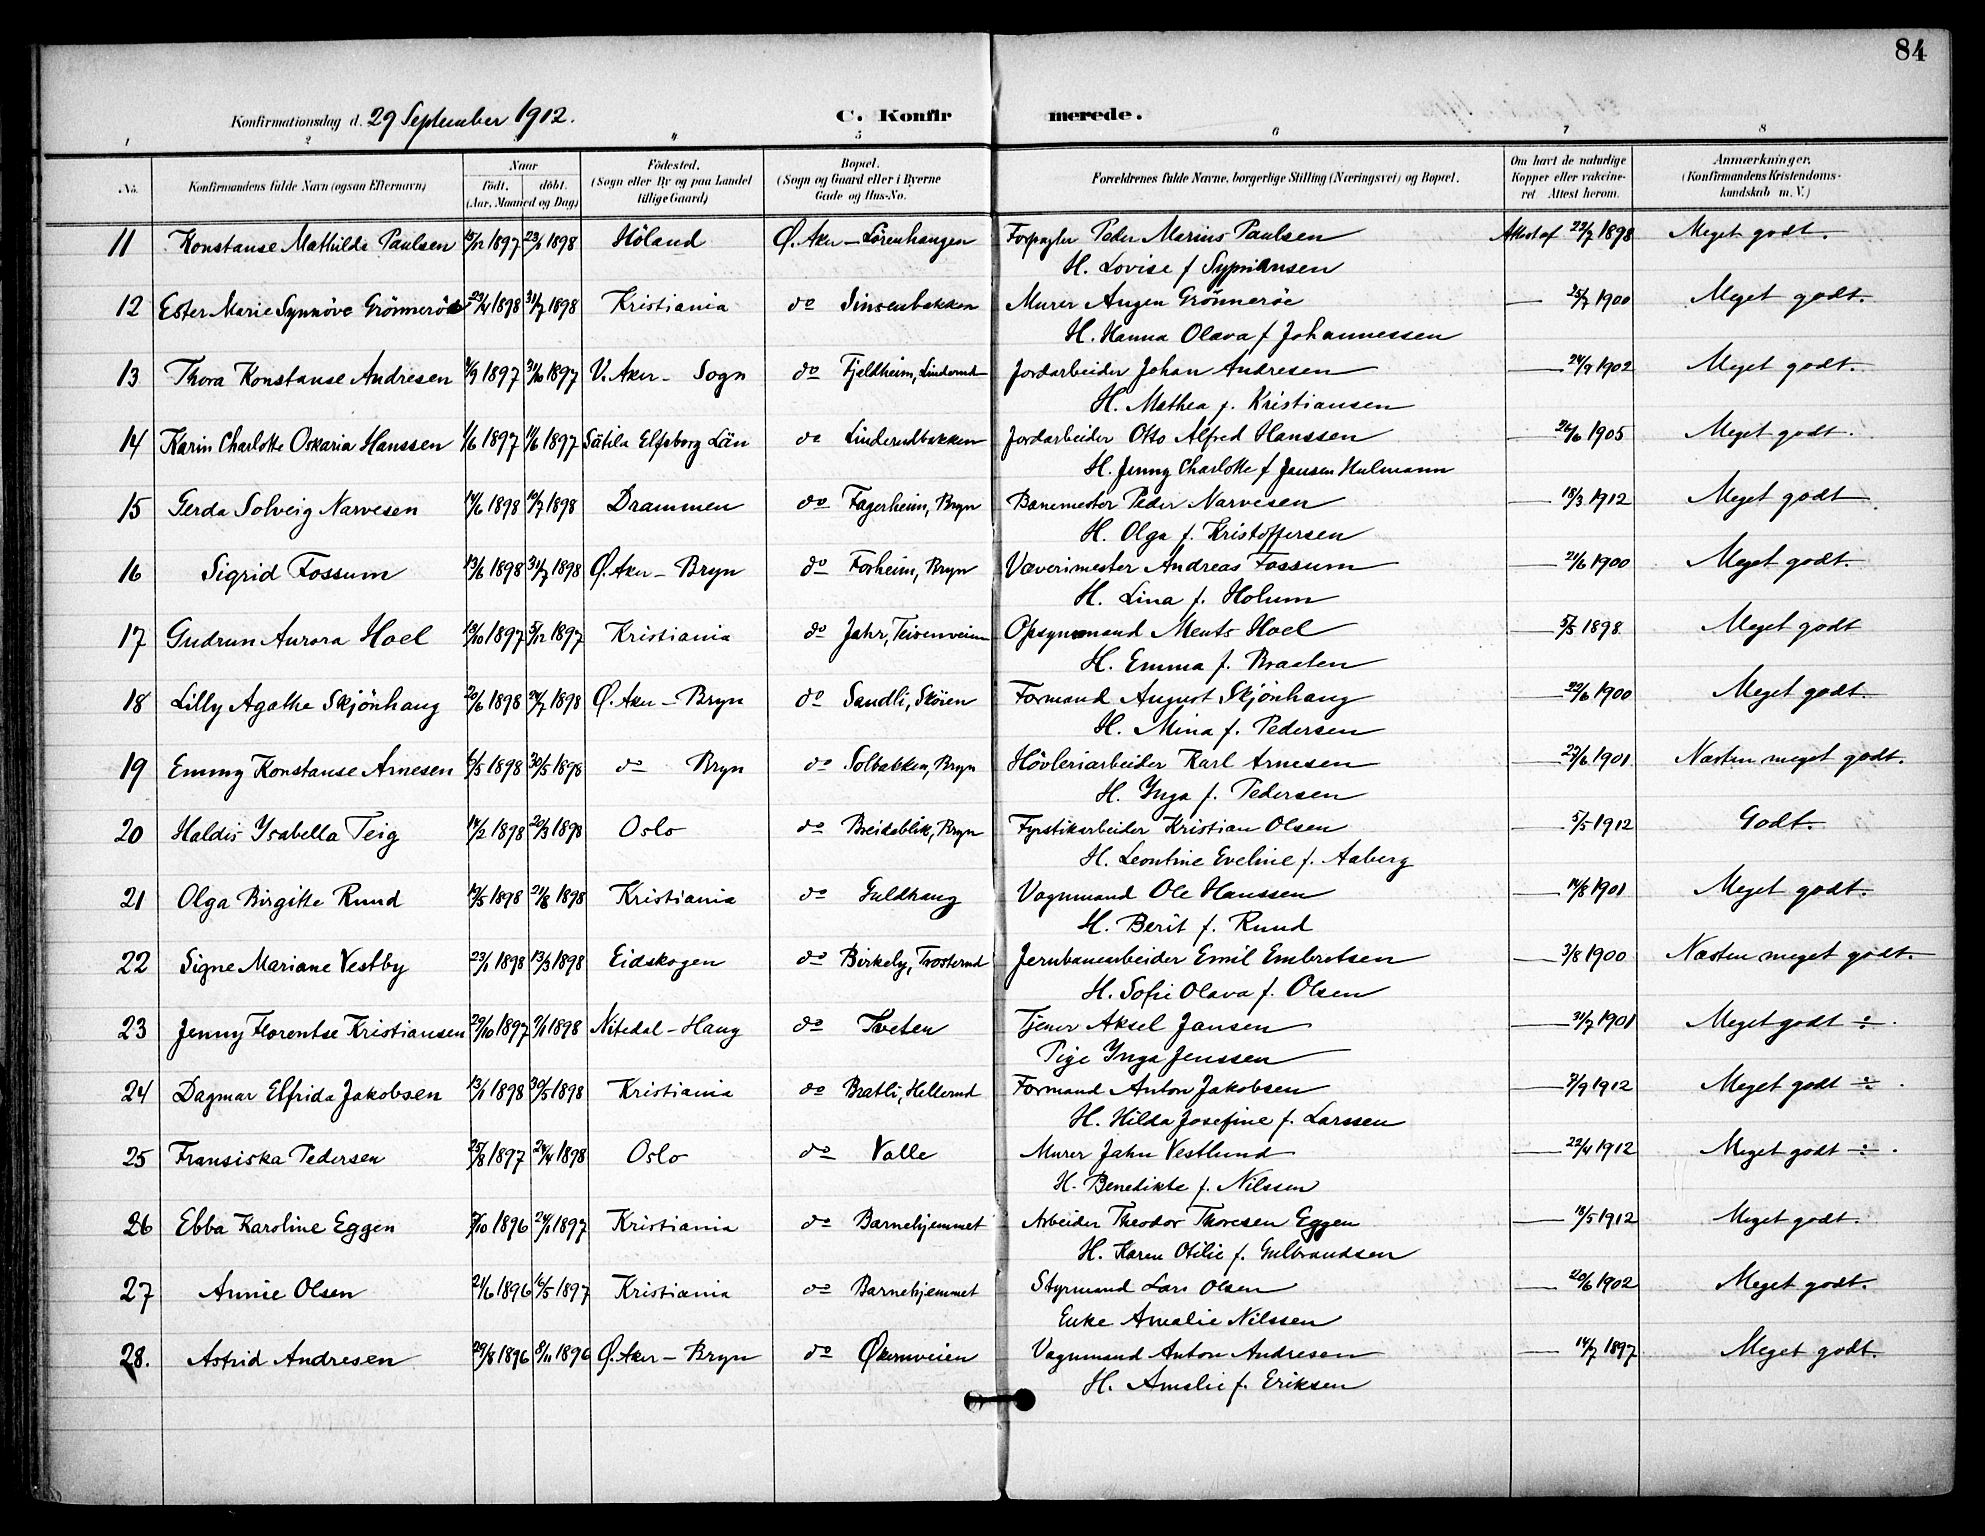 84
Konfirmationsdag d. 29 September 1912. C. Konfirmerede.
1 2 3 4 5 6 7 8
No. Konfirmandens fulde Navn (ogsaa Efternavn) Naar født. døbt. (Aar, Maaned og Dag) Fødested. (Sogn eller By og paa Landet tillige Gaard) Bopæl. (Sogn og Gaard eller i Byerne Gade og Hus-No. Forældrenes fulde Navne, borgerlige Stilling (Næringsvei) og Bopæl. Om havt de naturlige Kopper eller vakcineret. Attest herom. Anmærkninger. (Konfirmandens Kristendomskundskab m. V.)
11 Konstanse Mathilde Paulsen 15/12 1897 23/1 1898 Höland Ø. Aker - Lörenhaugen Forpagter Peder Marius Paulsen Attest af 22/7 1898 Meget godt.
H. Lovise f Sypriansen
12 Ester Marie Synnöve Grönneröe 23/4 1898 31/7 1898 Kristiania do Sinsenbakken Murer Augen Grönneröe — 25/7 1900 Meget godt.
H. Hanna Olava f Johannessen
13 Thora Konstanse Andresen /9 1897 31/10 1897 V. Aker - Sogn do Fjeldheim, Linderud Jordarbeider Johan Andresen — 24/9 1902 Meget godt.
H. Mathea f. Kristiansen
14 Karin Charlotte Oskaria Hanssen 1/6 1897 11/6 1897 Sätila Elfsborg Län do Linderudbakken Jordarbeider Otto Alfred Hanssen — 26/6 1905 Meget godt.
H. Jenny Charlotte f Jansen Hulmann
15 Gerda Solveig Narvesen 14/6 1898 10/7 1898 Drammen do Fagerheim, Bryn Banemester Peder Narvesen — 18/3 1912 Meget godt
H. Olga f. Kristoffersen
16 Sigrid Fossum 13/6 1898 31/7 1898 Ø. Aker - Bryn do Forheim, Bryn Væverimester Andreas Fossum — 21/6 1900 Meget godt.
H. Lina f. Holum
17 Gudrun Aurora Hoel 13/10 1897 5/12 1897 Kristiania do Jahr, Teisenveien Opsynsmand Ments Hoel — 5/5 1898 Meget godt
H. Emma f. Braaten
18 Lilly Agathe Skjönhaug 20/6 1898 24/7 1898 Ø. Aker - Bryn do Sandli, Skören Formand August Skjönhaug — 22/6 1900 Meget godt.
H. Mina f. Pedersen
19 Emmy Konstanse Arnesen 6/5 1898 30/5 1898 do Bryn do Solbakken, Bryn Hövleriarbeider Karl Arnesen — 27/6 1901 Næsten meget godt.
H. Inga f. Pedersen
20 Haldis Isabella Teig 14/2 1898 20/3 1898 Oslo do Breidablik, Bryn Fyrstikarbeider Kristian Olsen — 5/5 1912 Godt.
H. Leontine Eveline f. Aaberg
21 Olga Birgitte Ruud 19/5 1898 21/8 1898 Kristiania do Guldhaug Vognmand Ole Hanssen — 14/8 1901 Meget godt.
H. Berit f. Ruud
22 Signe Mariane Vestby 23/1 1898 13/3 1898 Eidskogen do Birkely, Trosterud Jernbanearbeider Emil Embretsen — 3/8 1900 Næsten meget godt.
H. Sofie Olava f. Olsen
23 Jenny Florentse Kristiansen 29/10 1897 /1 1898 Nitedal - Haug do Tveten Tjener Aksel Jansen — 31/7 1901 Meget godt ÷.
Pige Inga Jenssen
24 Dagmar Elfrida Jakobsen 13/1 1898 30/5 1898 Kristiania do Bratli, Hellerud Formand Anton Jakobsen — 7/9 1912 Meget godt ÷.
H. Hilda Josefine f. Larssen
25 Fransiska Pedersen 25/8 1897 24/4 1898 Oslo do Valle Murer Jahn Vestlund — 22/4 1912 Meget godt ÷.
H. Benedikte f. Nilssen
26 Ebba Karoline Eggen /10 1896 24/1 1897 Kristiania do Barnehjemmet Arbeider Theodor Thoresen Eggen — 13/5 1912 Meget godt.
H. Karen Otilie f. Gulbrandsen
27 Annie Olsen 21/6 1896 16/5 1897 Kristiania do Barnehjemmet Styrmand Lars Olsen — 20/6 1902 Meget godt.
Enke Amalie Nilssen
28. Astrid Andresen 29/8 1896 8/11 1896 Ø. Aker - Bryn do Økernveien Vognmand Anton Andresen — 14/7 1897 Meget godt.
H. Amalie f. Eriksen